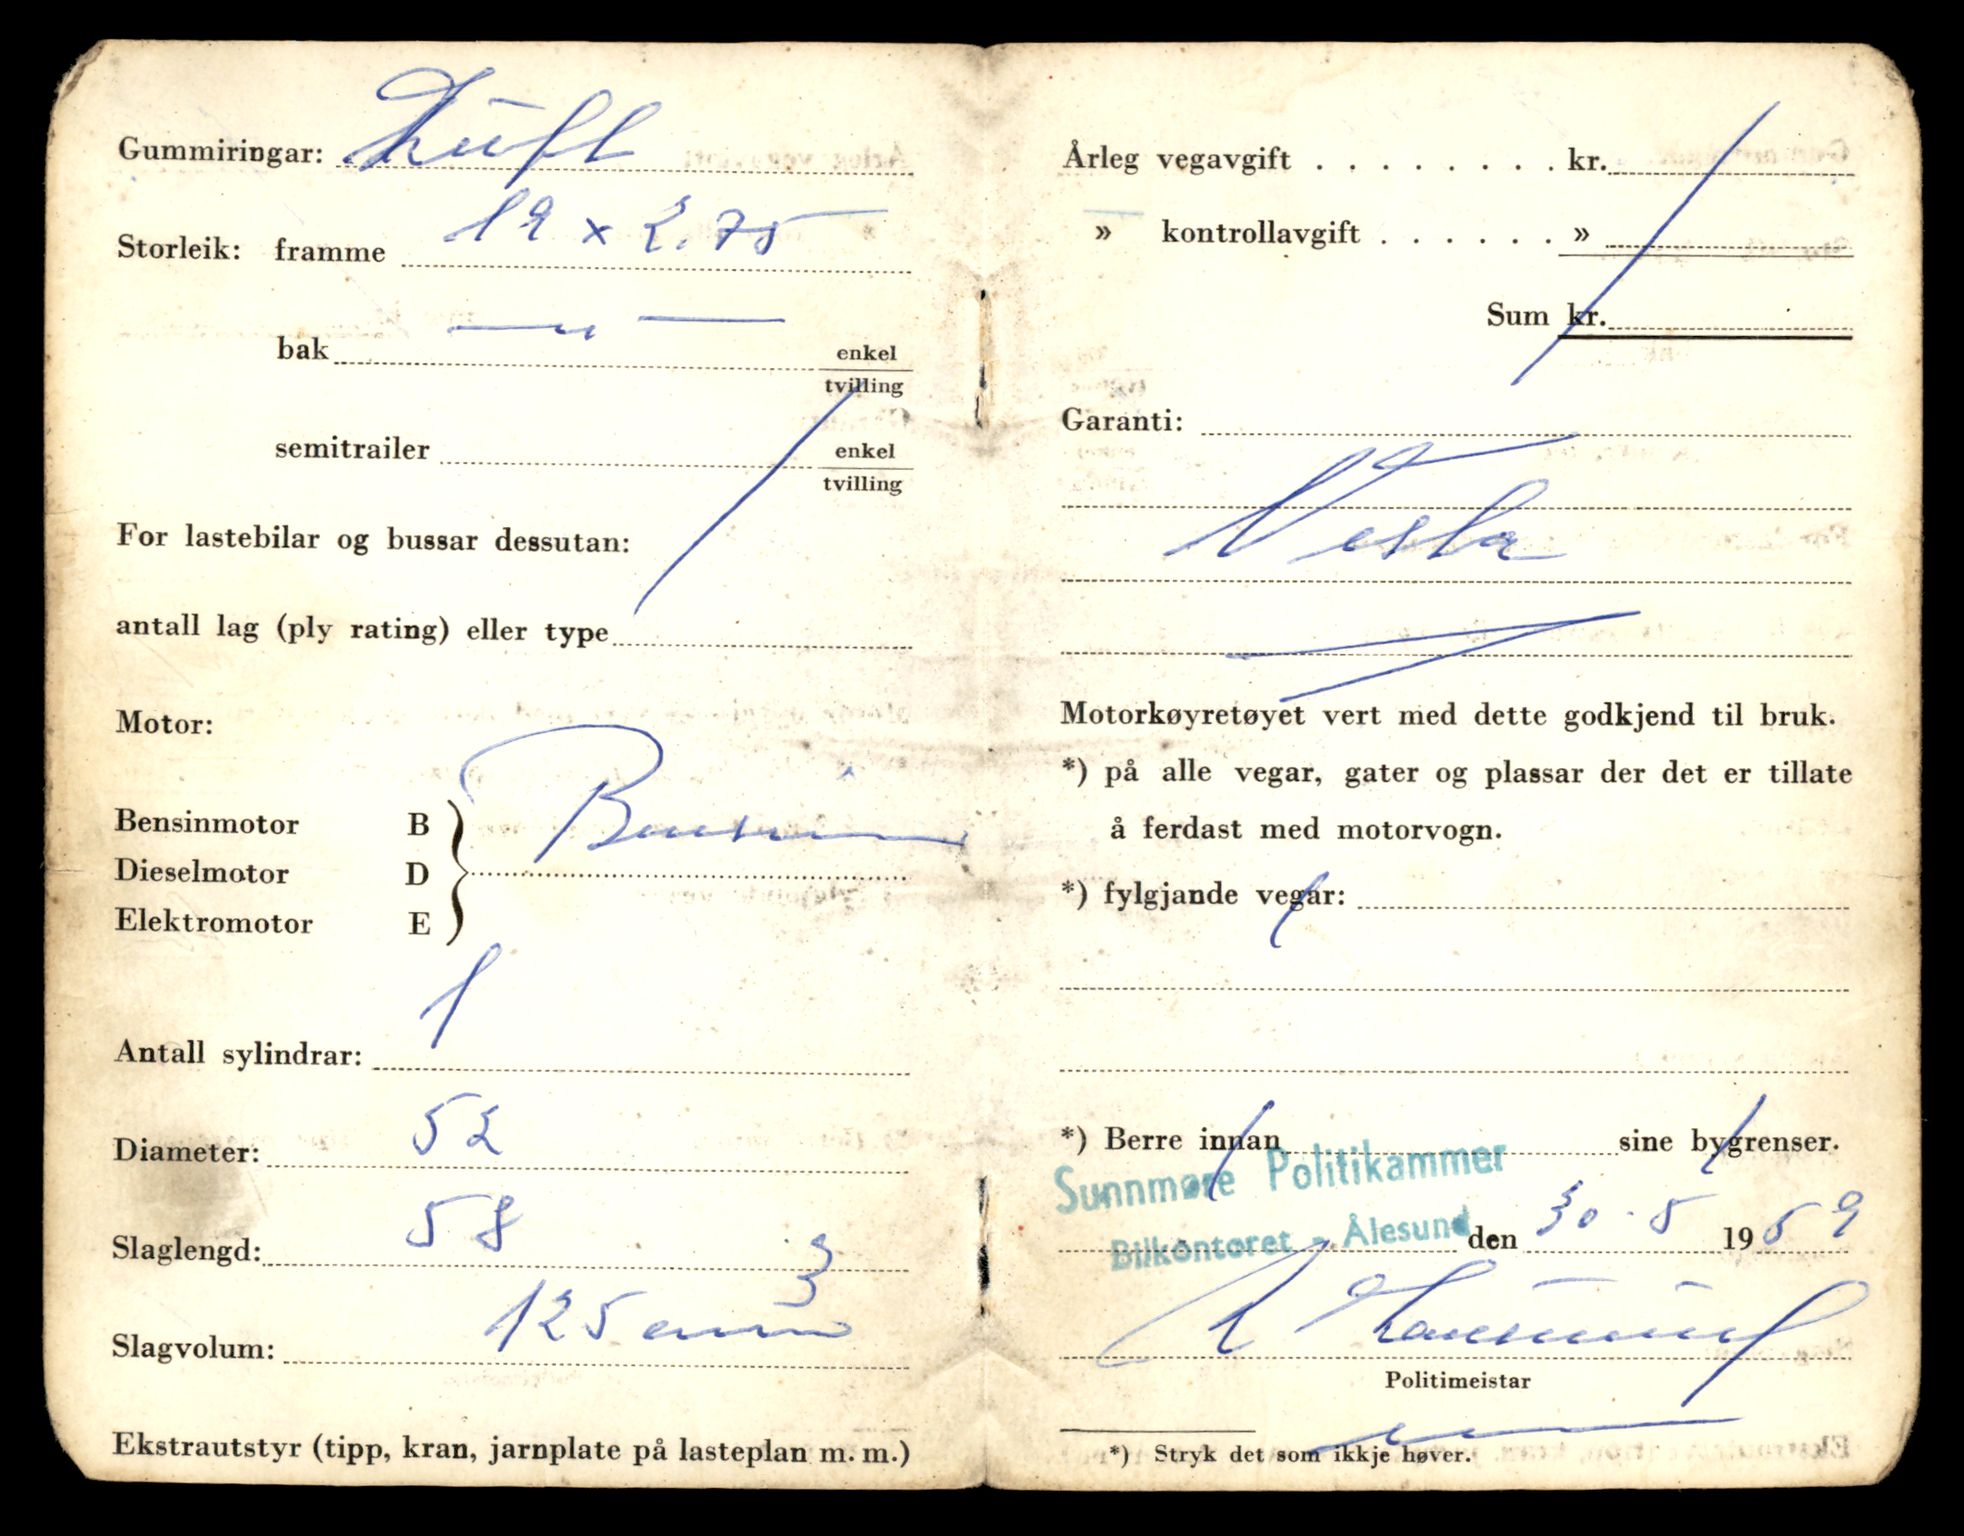 Gummiringar: Luft
Storleik: framme 19 x 2.75
bak — " — enkel
tvilling
semitrailer enkel
tvilling
For lastebilar og bussar dessutan:
antall lag (ply rating) eller type
Motor:
Bensinmotor B
Dieselmotor D
Elektromotor E
Bensin
Antall sylindrar: 1
Diameter: 52
Slaglengd: 58
Slagvolum: 125 cm3
Ekstrautstyr (tipp, kran, jarnplate på lasteplan m. m.)
Årleg vegavgift . . . . . . . . kr.
» kontrollavgift . . . . . . »
Sum kr.
Garanti:
Vesta
Motorkøyretøyet vert med dette godkjend til bruk.
*) på alle vegar, gater og plassar der det er tillate
å ferdast med motorvogn.
*) fylgjande vegar:
*) Berre innan sine bygrenser.
Sunnmøre Politikammer
Bilkontoret - Ålesund den 30.5 1959
Politimeistar
*) Stryk det som ikkje høver.